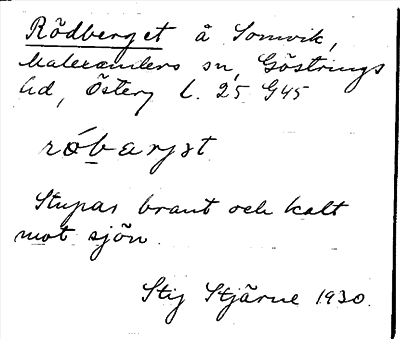 Rödberget å Somvik,
Malexanders sn, Göstrings
hd, Österg l. 25 G45
róbarjɛt
Stupar brant och kalt
mot sjön.
Stig Stjärne 1930.